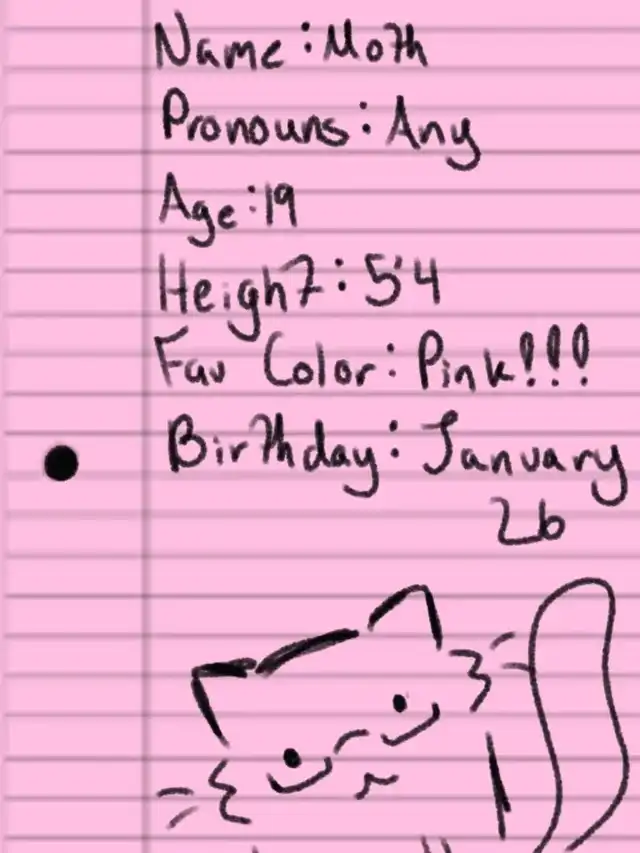 Name: Moth
Pronouns: Any
Age: 19
Height: 5'4
Fav Color: Pink!!!
Birthday: January
26